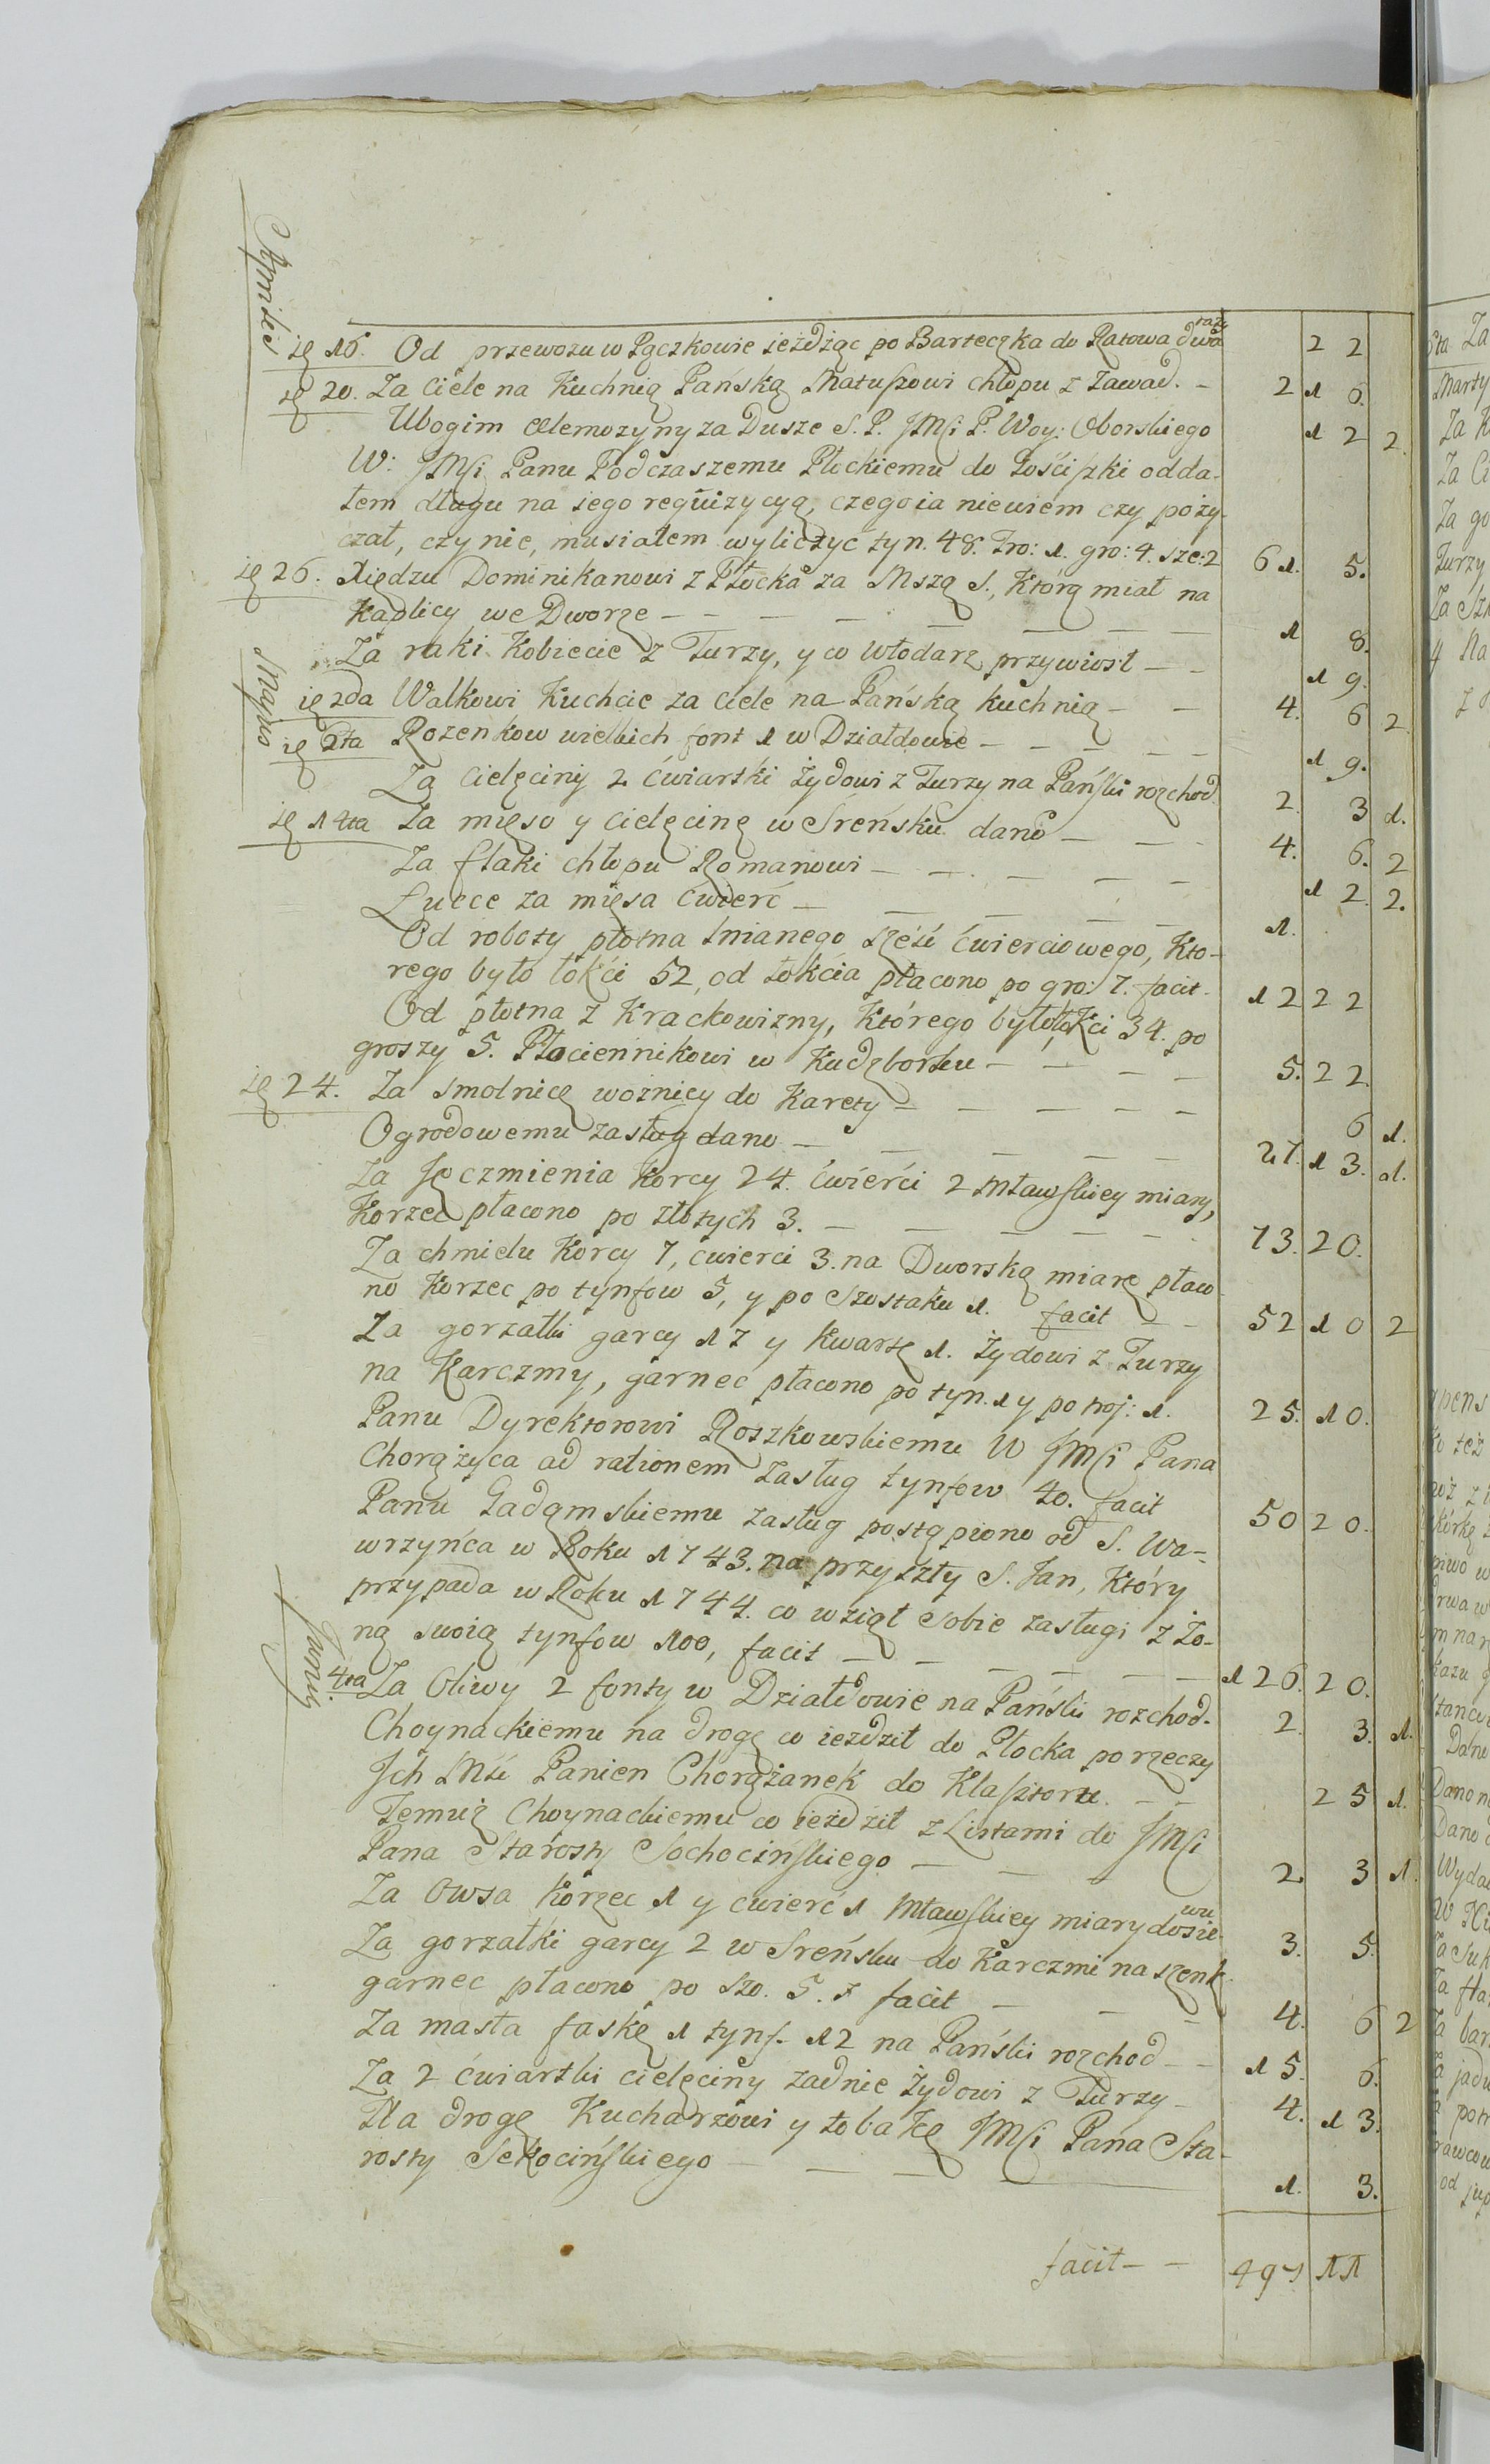 Aprilis
ię 16. Od przewozu w Pączkowie ieżdżąc po Barteczka do Ratowa dwa razy 22
ię 20. Za Ciele na Kuchnią Pańską Matuszowi chłopu z Zawad. - 2 16.
Ubogim Elemozyny za Dusze S. P. JMści P. Woy: Oborskiego 12 2.
W: JMści Panu Podczaszemu Płockiemu do Łościszki odda-
łem długu na iego reqũizycyą, czego ia niewiem czy poży-
czał, czy nie, musiałem wyliczyć tyn. 48. Tro: 1. gro: 4. sze: 2 61. 5.
ię 26. Xiędzu Dominikanowi z Płocka za Mszą S., Którą miał na
Kaplicy we Dworze - - - - - - 1 8.
Za raki Kobiecie z Turzy, y co Włodarz przywiozł - - 19.
Mayus
ię 2da Walkowi Kuchcie za ciele na Pańską kuchnią - - 4. 6 2
ię 6ta Rozenkow wielkich font 1 w Działdowie - - - - 19.
Za Cielęciny 2 ćwiartki Żydowi z Turzy na Pański rozchod. 2. 3 1.
ię 14ta Za mięso y cielęcinę w Sreńsku dano - - - 4. 6. 2
Za flaki chłopu Romanowi - - - - - 12. 2.
Łucce za mięsa ćwierć - - - - - 1.
Od roboty płotna lnianego sześć ćwierciowego, Kto-
rego było łokci 52, od łokcia płacono po gro: 7. facit. 12 22
Od płotna z Krackowizny, Którego było łokci 34. po
groszy 5. Płociennikowi w Kudzborku - - - - 5. 22.
ię 24. Za smolnicę woźnicy do Karety - - - - - 6 1.
Ogrodowemu zasług dano - - - - - 21. 13. 1.
Za Jęczmienia Korcy 24. ćwierći 2 Mławskiey miary,
Korzec płacono po złotych 3. - - - - - 73. 20.
Za chmielu Korcy 7, ćwierci 3. na Dworską miarę płaco
no Korzec po tynfow 5, y po Szostaku 1. facit - - 52 10 2
Za gorzałki garcy 17 y Kwartę 1. Żydowi z Turzy
na Karczmy, garnec płacono po tyn. 1 y po troj: 1. 25. 10.
Panu Dyrektorowi Roszkowskiemu W JMści Pana
Chorążyca ad rationem Zasług tynfow 40. facit 50 20.
Panu Gadomskiemu zasług postąpiono od S. Wa-
wrzyńca w Roku 1743. na przyszły S. Jan, Który
przypada w Roku 1744. co wziął sobie zasługi z Żo-
ną swoią tynfow 100, facit - - - - - 126. 20.
Junius
4ta Za Oliwy 2 fonty w Działdowie na Pański rozchod. 2. 3. 1.
Choynackiemu na drogę co ieździł do Płocka po rzeczy
Jch Mść Panien Chorążanek do Klasztoru. - - 25 1.
Temuż Choynackiemu co ieździł z Listami do JMści
Pana Starosty Sochocińskiego - - - 2. 3 1.
Za Owsa Korzec 1 y ćwierć 1 Mławskiey miary do sie-wu 3. 5.
Za gorzałki garcy 2 w Sreńsku do Karczmi na szenk.
garnec płacono po szo. 5. facit - - - 4. 6 2
Za masła faskę 1 tynf. 12 na Pański rozchod - - 15. 6.
Za 2 ćwiartki cielęciny zadnie Żydowi z Turzy - 4. 13.
Na drogę Kucharzowi y tobakę JMści Pana Sta-
rosty Sekocińskiego - - - 1. 3.
facit - - 497 11